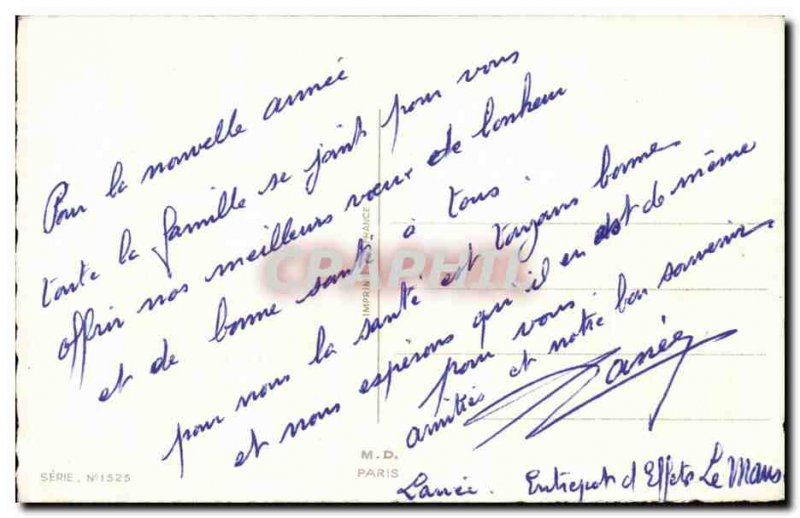 Pour la nouvelle année
toute la famille se joint pour vous
offrir nos meilleurs vœux de bonheur
et de bonne santé à tous.
pour nous la santé est toujours bonne
et nous espérons qu'il en est de même
pour vous.
amitiés et notre bon souvenir
Lanée. Entrepot d'Effets Le Mans
IMPRIMÉ EN FRANCE
CPAPHIL
M.D.
PARIS
SÉRIE. N°1525